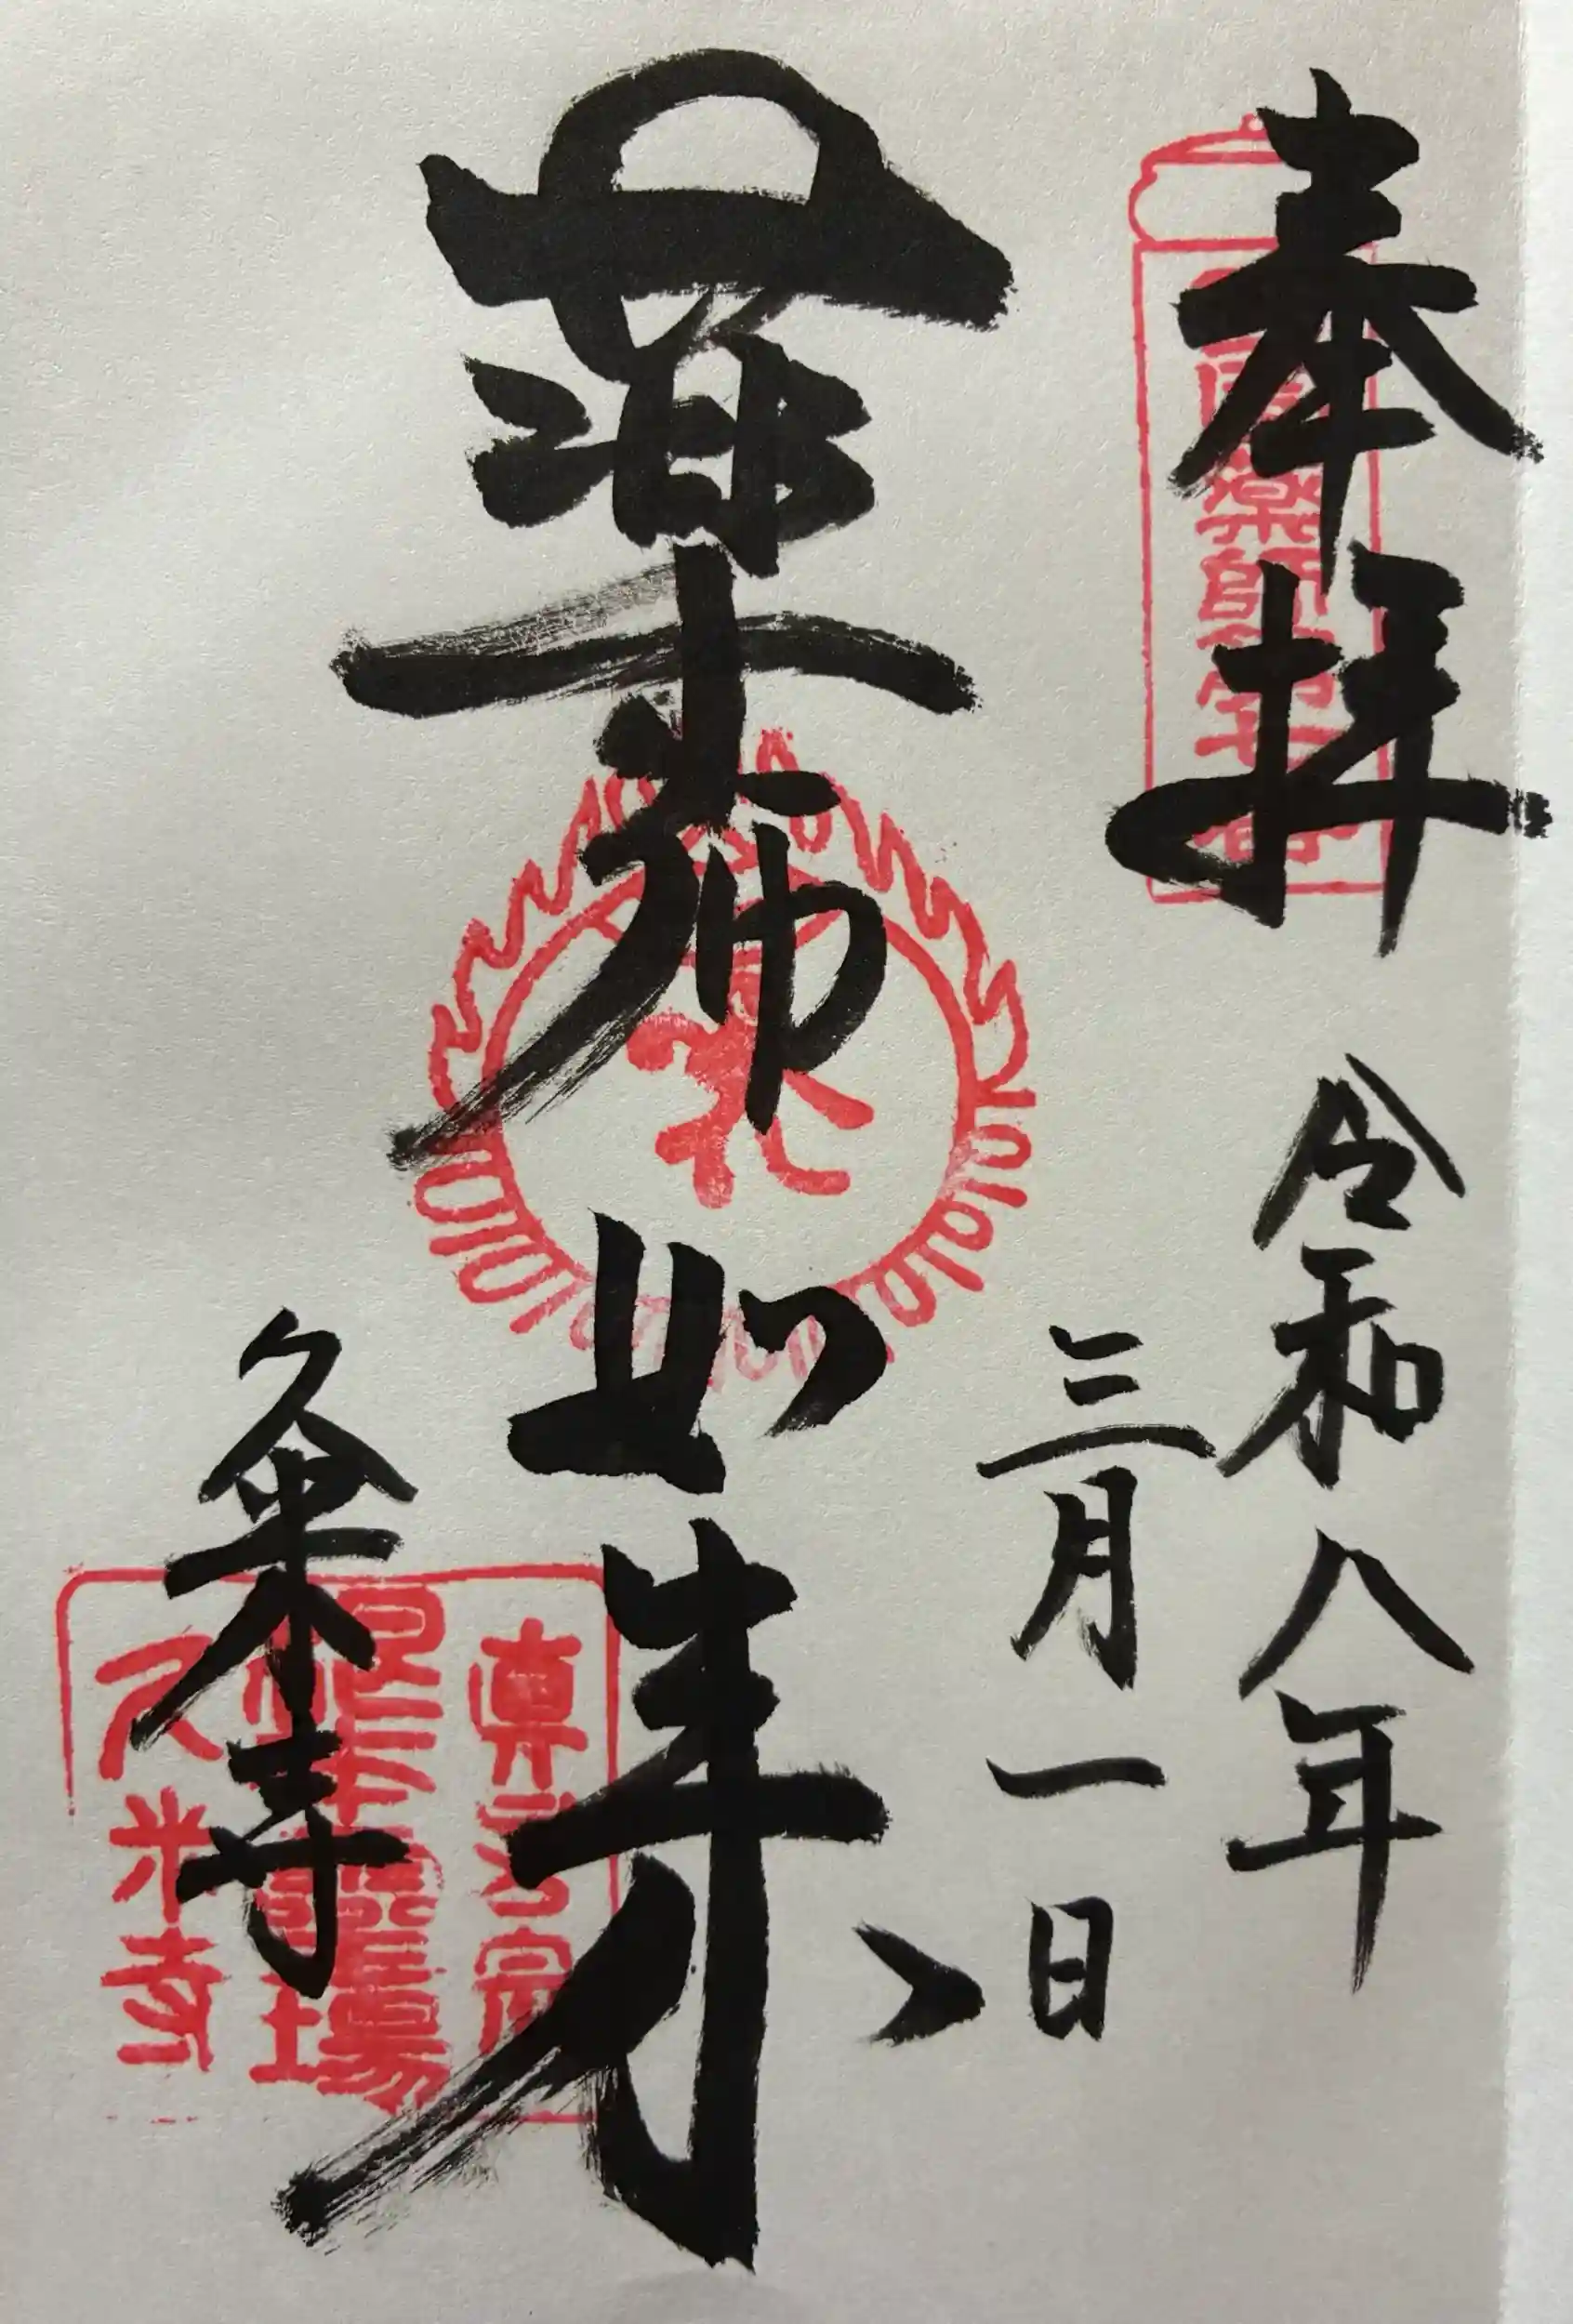 奉拝
令和八年
三月一日
薬師如来
久米寺
真言宗
根本道場
久米寺